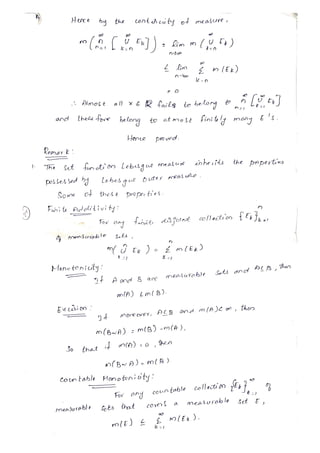 Hence by the continuity of measure,
m ( ∞ ∩ n=1 [ ∞ ∪ k=n Ek ] ) = lim n→∞ m ( ∞ ∪ k=n Ek )
≤ lim n→∞ ∞ Σ k=n m (Ek)
= 0
∴ Almost all x ∈ R fails to belong to ∞ ∩ n=1 [ ∞ ∪ k=n Ek ]
and therefore belong to at most finitely many E's.
Hence proved.
Remark:
1. The set function Lebesgue measure inherits the properties
possessed by Lebesgue outer measure.
Some of these properties.
Finite Additivity:
For any finite disjoint collection {Ek} n k=1
of measurable sets,
m( n ∪ k=1 Ek ) = n Σ k=1 m(Ek)
Monotonicity:
If A and B are measurable sets and A⊆B, then
m(A) ≤ m(B).
Excision:
If moreover, A⊆B and m(A)<∞, then
m(B~A) = m(B) - m(A),
So that if m(A) = 0, then
m(B~A) = m(B)
Countable Monotonicity:
For any countable collection {Ek} ∞ k=1 of
measurable sets that covers a measurable set E,
m(E) ≤ ∞ Σ k=1 m(Ek).